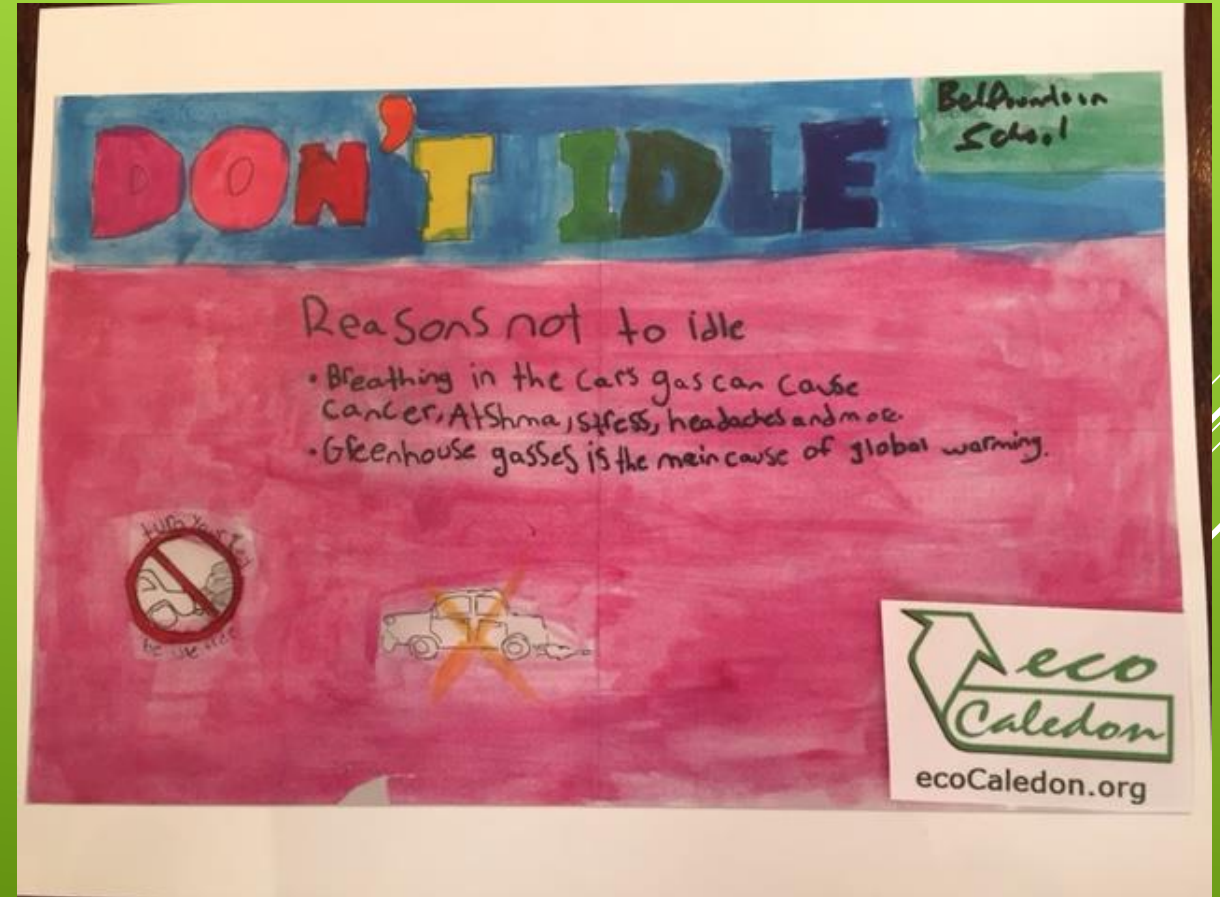 DON'T IDLE
School
Reasons not to idle
• Breathing in the cars gas can cause
cancer, Atshma, stress, headaches and more.
• Greenhouse gasses is the main cause of global warming.
turn your
be
eco
Caledon
ecoCaledon.org